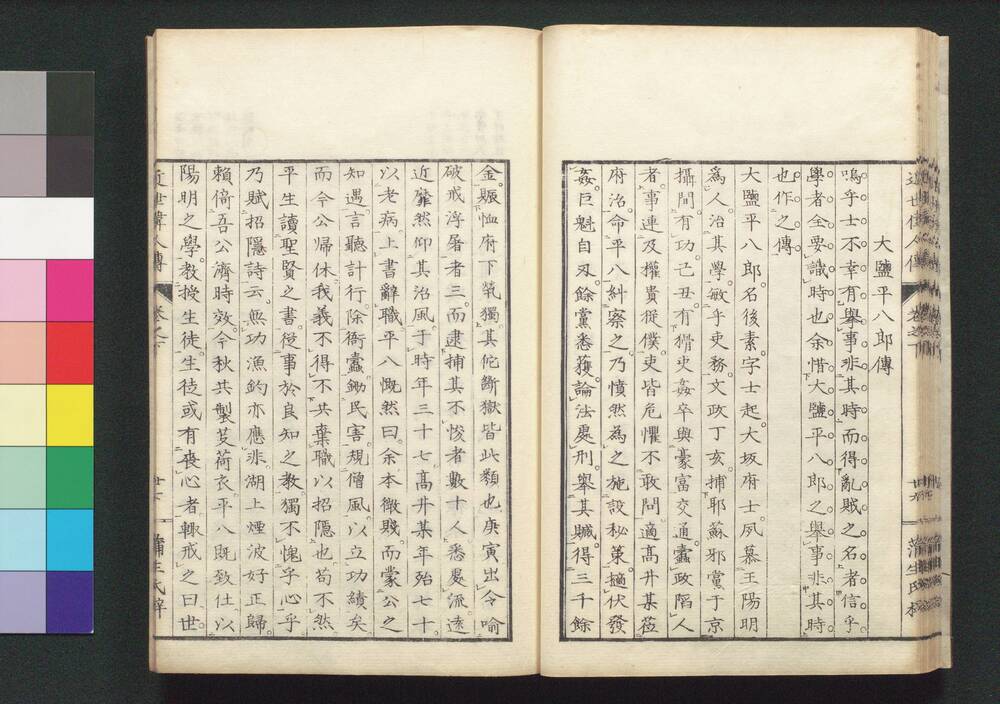 大鹽平八郎傳
嗚乎士不幸有擧事非其時而得亂賊之名者信乎
學者全要識時也余惜大鹽平八郎之擧事非其時
也作之傳
大鹽平八郎名後素字士起大坂府士夙慕王陽明
爲人治其學敏乎吏務文政丁亥捕耶蘇邪黨于京
攝間有功己丑有猾吏姦卒與豪富交通蠹政陷人
者事連及權貴從僕吏皆危懼不敢問適高井某莅
府治命平八糾察之乃憤然為之施設秘策擿伏發
姦巨魁自刃餘黨悉獲論法處刑舉其贓得三千餘
金賑恤府下煢獨其佗斷獄皆此類也庚寅出令喻
破戒浮屠者三而逮捕其不悛者數十人悉處流遠
近靡然仰其治風于時年三十七高井某年殆七十
以老病上書辭職平八慨然曰余本微賤而蒙公之
知遇言聽計行除衙蠹鋤民害規僧風以立功績矣
而今公歸休我義不得不共棄職以招隱也苟不然
平生讀聖賢之書從事於良知之教獨不愧乎心乎
乃賦招隱詩云無功漁釣亦應非湖上煙波好正歸
賴倚吾公濟時效今秋共製芰荷衣平八既致仕以
陽明之學教授生徒生徒或有喪心者輙戒之曰世
近世偉人傳
卷之
廿七
蒲生氏梓